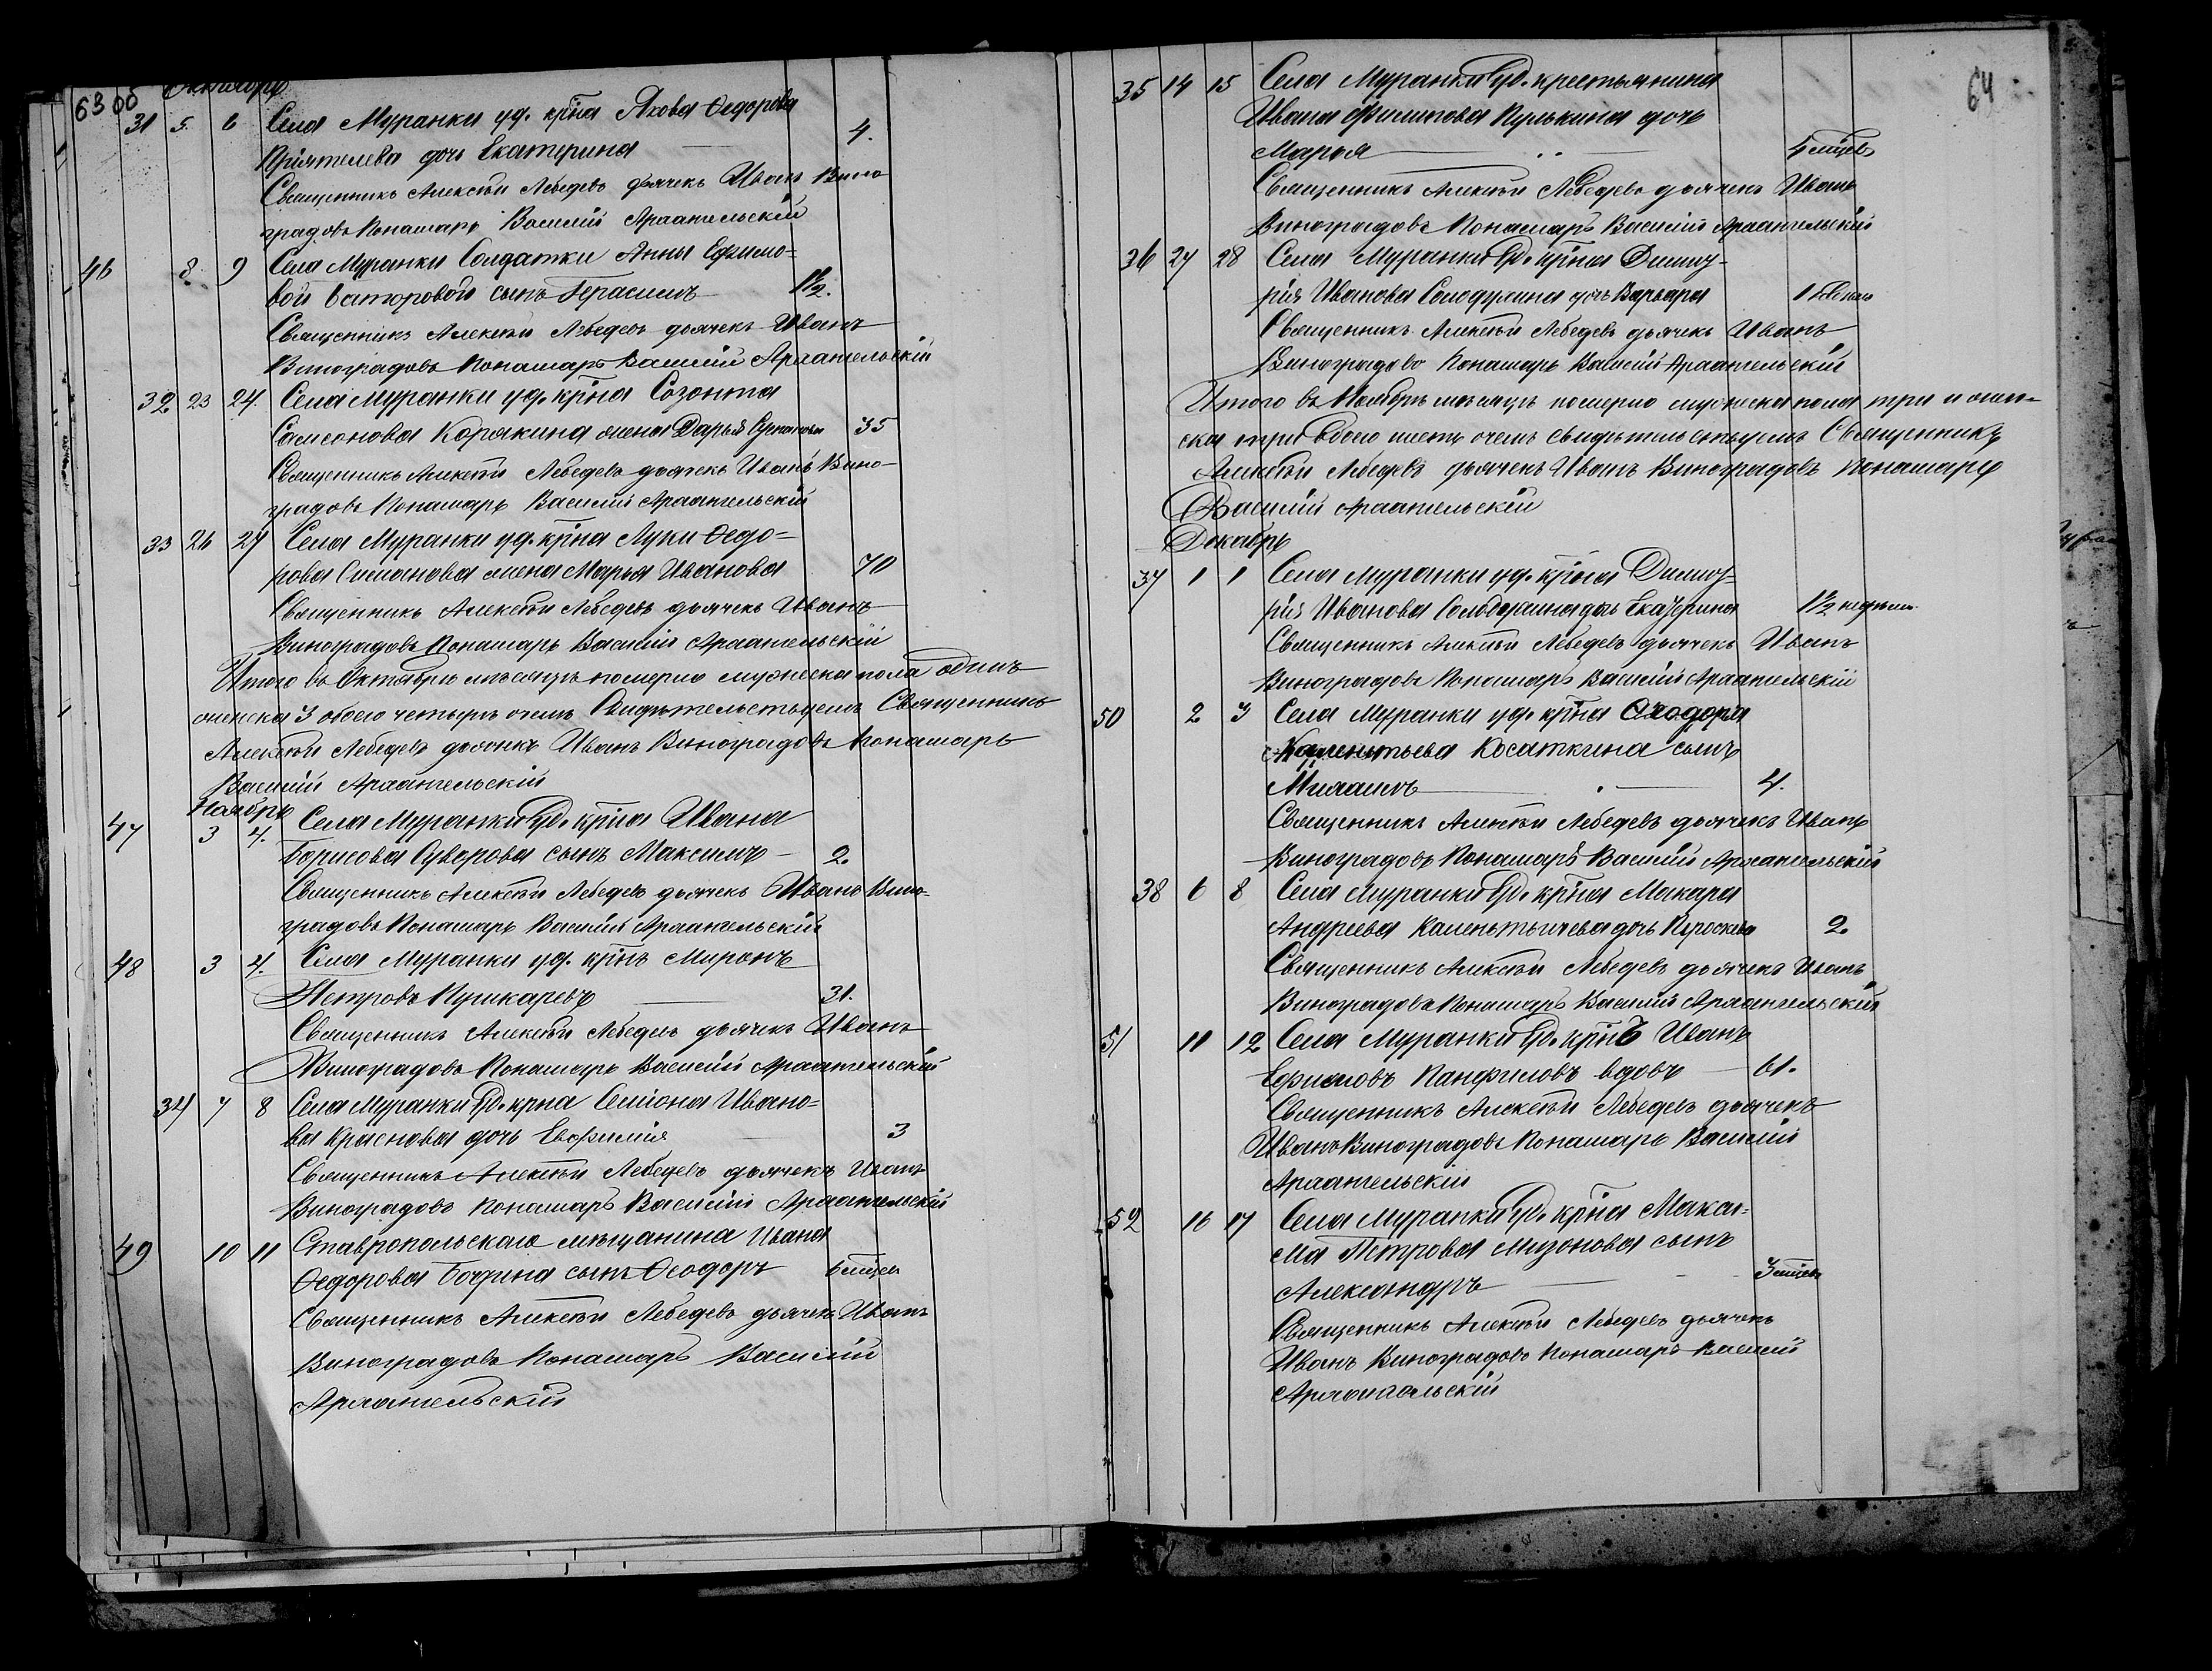 63 об
Октябрь
31 5. 6 Села Муранки уд. кр͠на Якова Ѳедорова
Пріятелева дочь Екатерина 4.
Священникъ Алексѣй Лебедевъ дьячекъ Иванъ Вино-
градовъ Понамарь Василій Архангельскій
46 8. 9 Села Муранки Солдатки Анны Ефимо-
вой сынъ Герасимъ 1½.
Священникъ Алексѣй Лебедевъ дьячекъ Иванъ
Виноградовъ Понамарь Василій Архангельскій
32 23 24. Села Муранки уд. кр͠на Созонта
Самсонова Корякина жена Дарья 35
Священникъ Алексѣй Лебедевъ дьячекъ Иванъ Вино-
градовъ Понамарь Василій Архангельскій
33 26 27 Села Муранки уд. кр͠на Луки Ѳедо-
рова Симанова жена Марья Иванова 70
Священникъ Алексѣй Лебедевъ дьячекъ Иванъ
Виноградовъ Понамарь Василій Архангельскій
Итого въ Октябрѣ мѣсяцѣ померло мужеска пола одинъ
женска 3 обоего четыре о чемъ Свидѣтельствуемъ Священникъ
Алексѣй Лебедевъ дьячекъ Иванъ Виноградовъ Понамарь
Василій Архангельскій
Ноябрь
47 3 4. Села Муранки Уд. кр͠на Ивана
Борисова Суварова сынъ Максимъ 2.
Священникъ Алексѣй Лебедевъ дьячекъ Иванъ Вино-
градовъ Понамарь Василій Архангельскій
48 3 4. Села Муранки уд. кр͠нъ Миронъ
Петровъ Пушкаревъ 31.
Священникъ Алексѣй Лебедевъ дьячекъ Иванъ
Виноградовъ Понамарь Василій Архангельскій
34 7 8 Села Муранки Уд. кр͠на Семіона Ивано-
ва Краснова дочь Евфимія 3
Священникъ Алексѣй Лебедевъ дьячекъ Иванъ
Виноградовъ Понамарь Василій Архангельскій
49 10 11 Ставропольскаго мѣщанина Ивана
Ѳедорова сынъ Ѳеодоръ 6 мѣсяц
Священникъ Алексѣй Лебедевъ дьячекъ Иванъ
Виноградовъ Понамарь Василій
Архангельскій
64
35 14 15 Села Муранки Уд. крестьянина
Ивана Филипова Кулькина дочь
Марья мѣсяц
Священникъ Алексѣй Лебедевъ дьячекъ Иванъ
Виноградовъ Понамарь Василій Архангельскій
36 27 28 Села Муранки Уд. кр͠на Дмит-
рія Иванова дочь Варвара
Священникъ Алексѣй Лебедевъ дьячекъ Иванъ
Виноградовъ Понамарь Василій Архангельскій
Итого въ Ноябрѣ мѣсяцѣ померло мужеска пола три и жен-
ска три обоего шесть о чемъ свидѣтельствуемъ Священникъ
Алексѣй Лебедевъ дьячекъ Иванъ Виноградовъ Понамарь
Василій Архангельскій
Декабрь
37 1 1 Села Муранки уд. кр͠на Дмит-
рія Иванова дочь Екатерина 1½ недѣли
Священникъ Алексѣй Лебедевъ дьячекъ Иванъ
Виноградовъ Понамарь Василій Архангельскій
50 2 3 Села Муранки уд. кр͠на
Косаткина сынъ
Михаилъ 4.
Священникъ Алексѣй Лебедевъ дьячекъ Иванъ
Виноградовъ Понамарь Василій Архангельскій
38 6 8 Села Муранки Уд. кр͠на Макара
Андреева Каленьтьичева дочь 2.
Священникъ Алексѣй Лебедевъ дьячекъ Иванъ
Виноградовъ Понамарь Василій Архангельскій
51 11 12 Села Муранки Уд. кр͠нъ Иванъ
Ефимовъ Панфиловъ вдовъ 61.
Священникъ Алексѣй Лебедевъ дьячекъ
Иванъ Виноградовъ Понамарь Василій
Архангельскій
52 16 17 Села Муранки Уд. кр͠на Макси-
ма Петрова Мизонова сынъ
Александръ 3 мѣсяц
Священникъ Алексѣй Лебедевъ дьячекъ
Иванъ Виноградовъ Понамарь Василій
Архангельскій